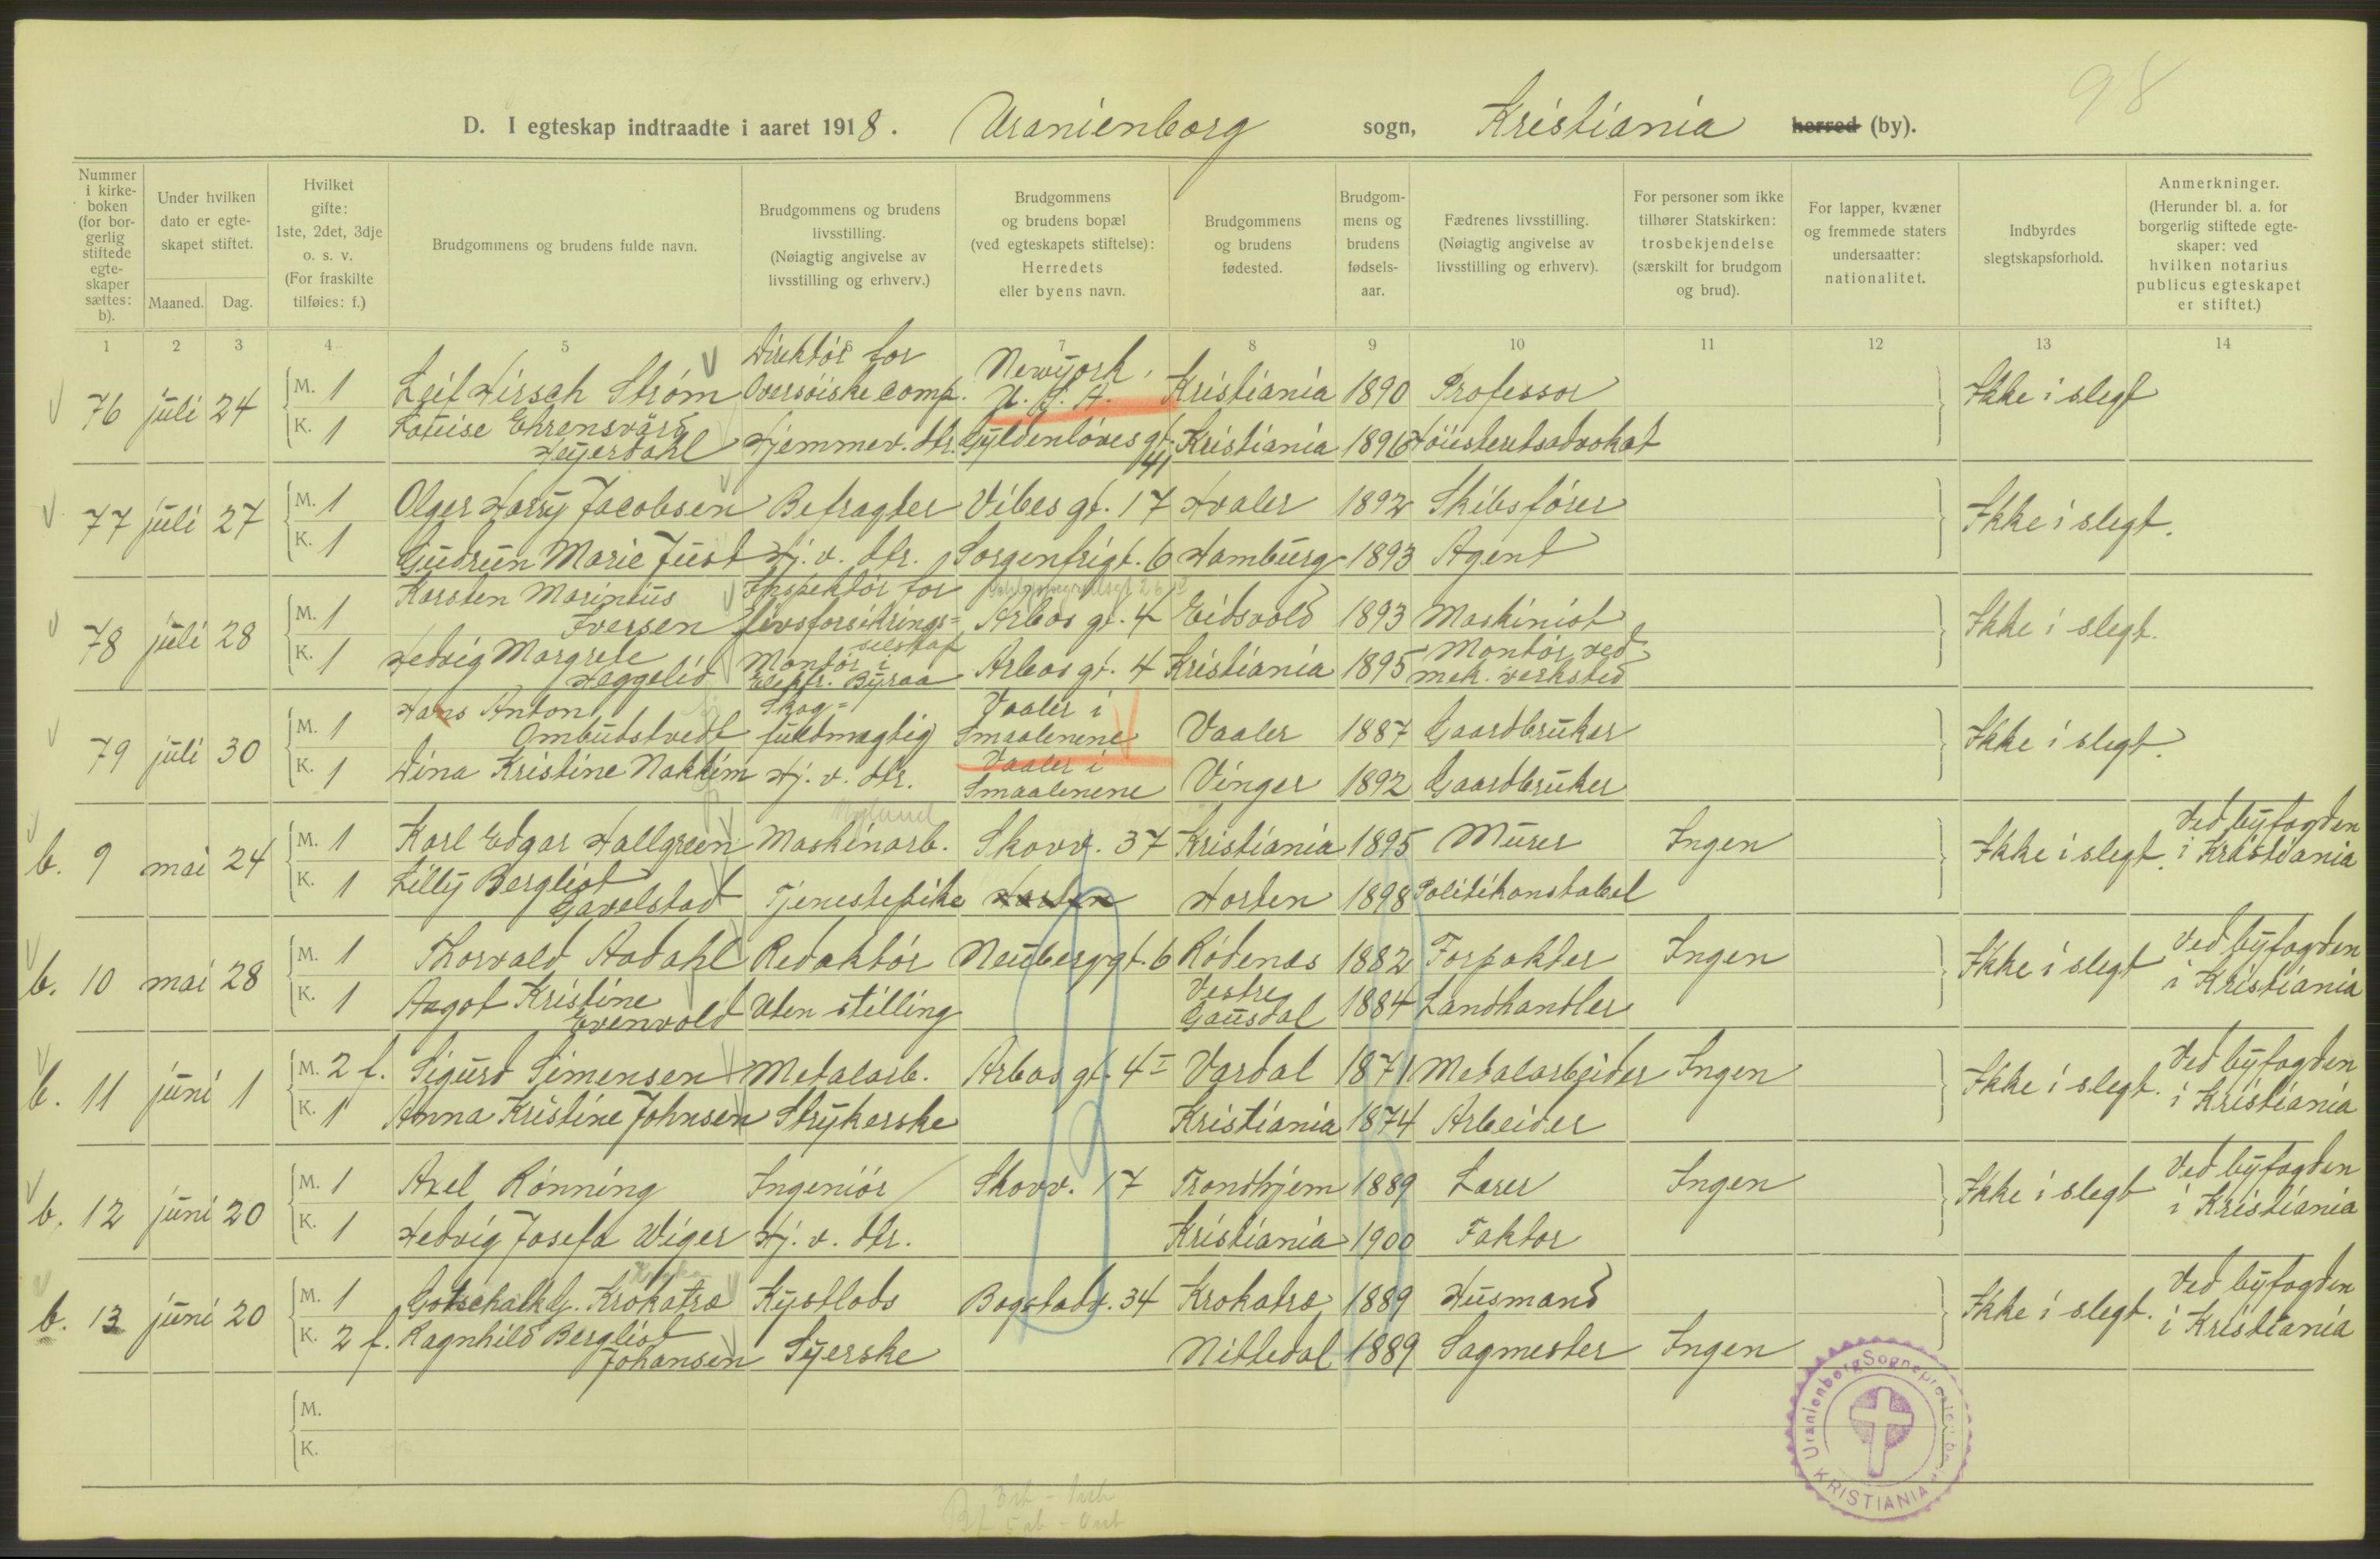 98
D. I egteskap indtraadte i aaret 1918. Uranienborg sogn, Kristiania herred (by).
Nummer i kirke- boken (for bor- gerlig stiftede egte- skaper sættes: b).
Under hvilken dato er egte- skapet stiftet.
Maaned. Dag.
Hvilket gifte: 1ste, 2det, 3dje o. s. v. (For fraskilte tilføies: f.)
Brudgommens og brudens fulde navn.
Brudgommens og brudens livsstilling. (Nøiagtig angivelse av livsstilling og erhverv.)
Brudgommens og brudens bopæl (ved egteskapets stiftelse): Herredets eller byens navn.
Brudgommens og brudens fødested.
Brudgom- mens og brudens fødsels- aar.
Fædrenes livsstilling. (Nøiagtig angivelse av livsstilling og erhverv).
For personer som ikke tilhører Statskirken: trosbekjendelse (særskilt for brudgom og brud).
For lapper, kvæner og fremmede staters undersaatter: nationalitet.
Indbyrdes slegtskapsforhold.
Anmerkninger. (Herunder bl. a. for borgerlig stiftede egte- skaper: ved hvilken notarius publicus egteskapet er stiftet.)
1 2 3 4 5 6 7 8 9 10 11 12 13 14
76 juli 24 M. 1 Leif Hirsch Strøm Direktør for Oversøiske comp. Newyork, U. S. A. Kristiania 1890 Professor Ikke i slegt
K. 1 Louise Ehrensvärd Heyerdahl Hjemmev. dtr. Gyldenløves gt. 41 Kristiania 1896 Høiesteretsadvokat
77 juli 27 M. 1 Olger Harry Jacobsen Befragter Vibes gt. 17 Hvaler 1892 Skibsfører Ikke i slegt.
K. 1 Gudrun Marie Just Hj. v. dtr. Sorgenfrigt. 6 Hamburg 1893 Agent
78 juli 28 M. 1 Karsten Marinius Iversen Inspektør for livsforsikrings= selskap Arbos gt. 4 Eidsvold 1893 Maskinist Ikke i slegt.
K. 1 Hedvig Margrete Heggelid Montør i Elektr. Byraa Arbos gt. 4 Kristiania 1895 Montør ved mek. verksted
79 juli 30 M. 1 Hans Anton Ombudstvedt Skog= fuldmægtig Vaaler i Smaalenene Vaaler 1887 Gaardbruker Ikke i slegt.
K. 1 Dina Kristine Nakkim Hj. v. dtr. Vaaler i Smaalenene Vinger 1892 Gaardbruker
Nyland
b. 9 mai 24 M. 1 Karl Edgar Hallgreen Maskinarb. Skovv. 37 Kristiania 1895 Murer Ingen Ikke i slegt. Ved byfogden i Kristiania
K. 1 Lilly Bergliot Gavelstad Tjenestepike Horten Horten 1898 Politikonstabel
b. 10 mai 28 M. 1 Thorvald Aadahl Redaktør Neuberggt. 6 Rødenes 1882 Forpakter Ingen Ikke i slegt Ved byfogden i Kristiania
K. 1 Aagot Kristine Evenvold Uten stilling Vestre Gausdal 1884 Landhandler
b. 11 juni 1 M. 2 f. Sigurd Simensen Metalarb. Arbos gt. 4 I Vardal 1871 Metalarbeider Ingen Ikke i slegt. Ved byfogden i Kristiania
K. 1 Anna Kristine Johnsen Strykerske Kristiania 1874 Arbeider
b. 12 juni 20 M. 1 Axel Rønning Ingeniør Skovv. 17 Trondhjem 1889 Lærer Ingen Ikke i slegt Ved byfogden i Kristiania
K. 1 Hedvig Josefa Wiger Hj. v. dtr. Kristiania 1900 Faktor
b. 13 juni 20 M. 1 Gotschalk G. Krokatrø Kystlods Bogstadv. 34 Krokatrø 1889 Husmand Ikke i slegt. Ved byfogden i Kristiania
K. 2 f. Ragnhild Bergliot Johansen Syerske Nittedal 1889 Sagmester Ingen
M.
K.
Uranienborg Sogneprestembede
KRISTIANIA